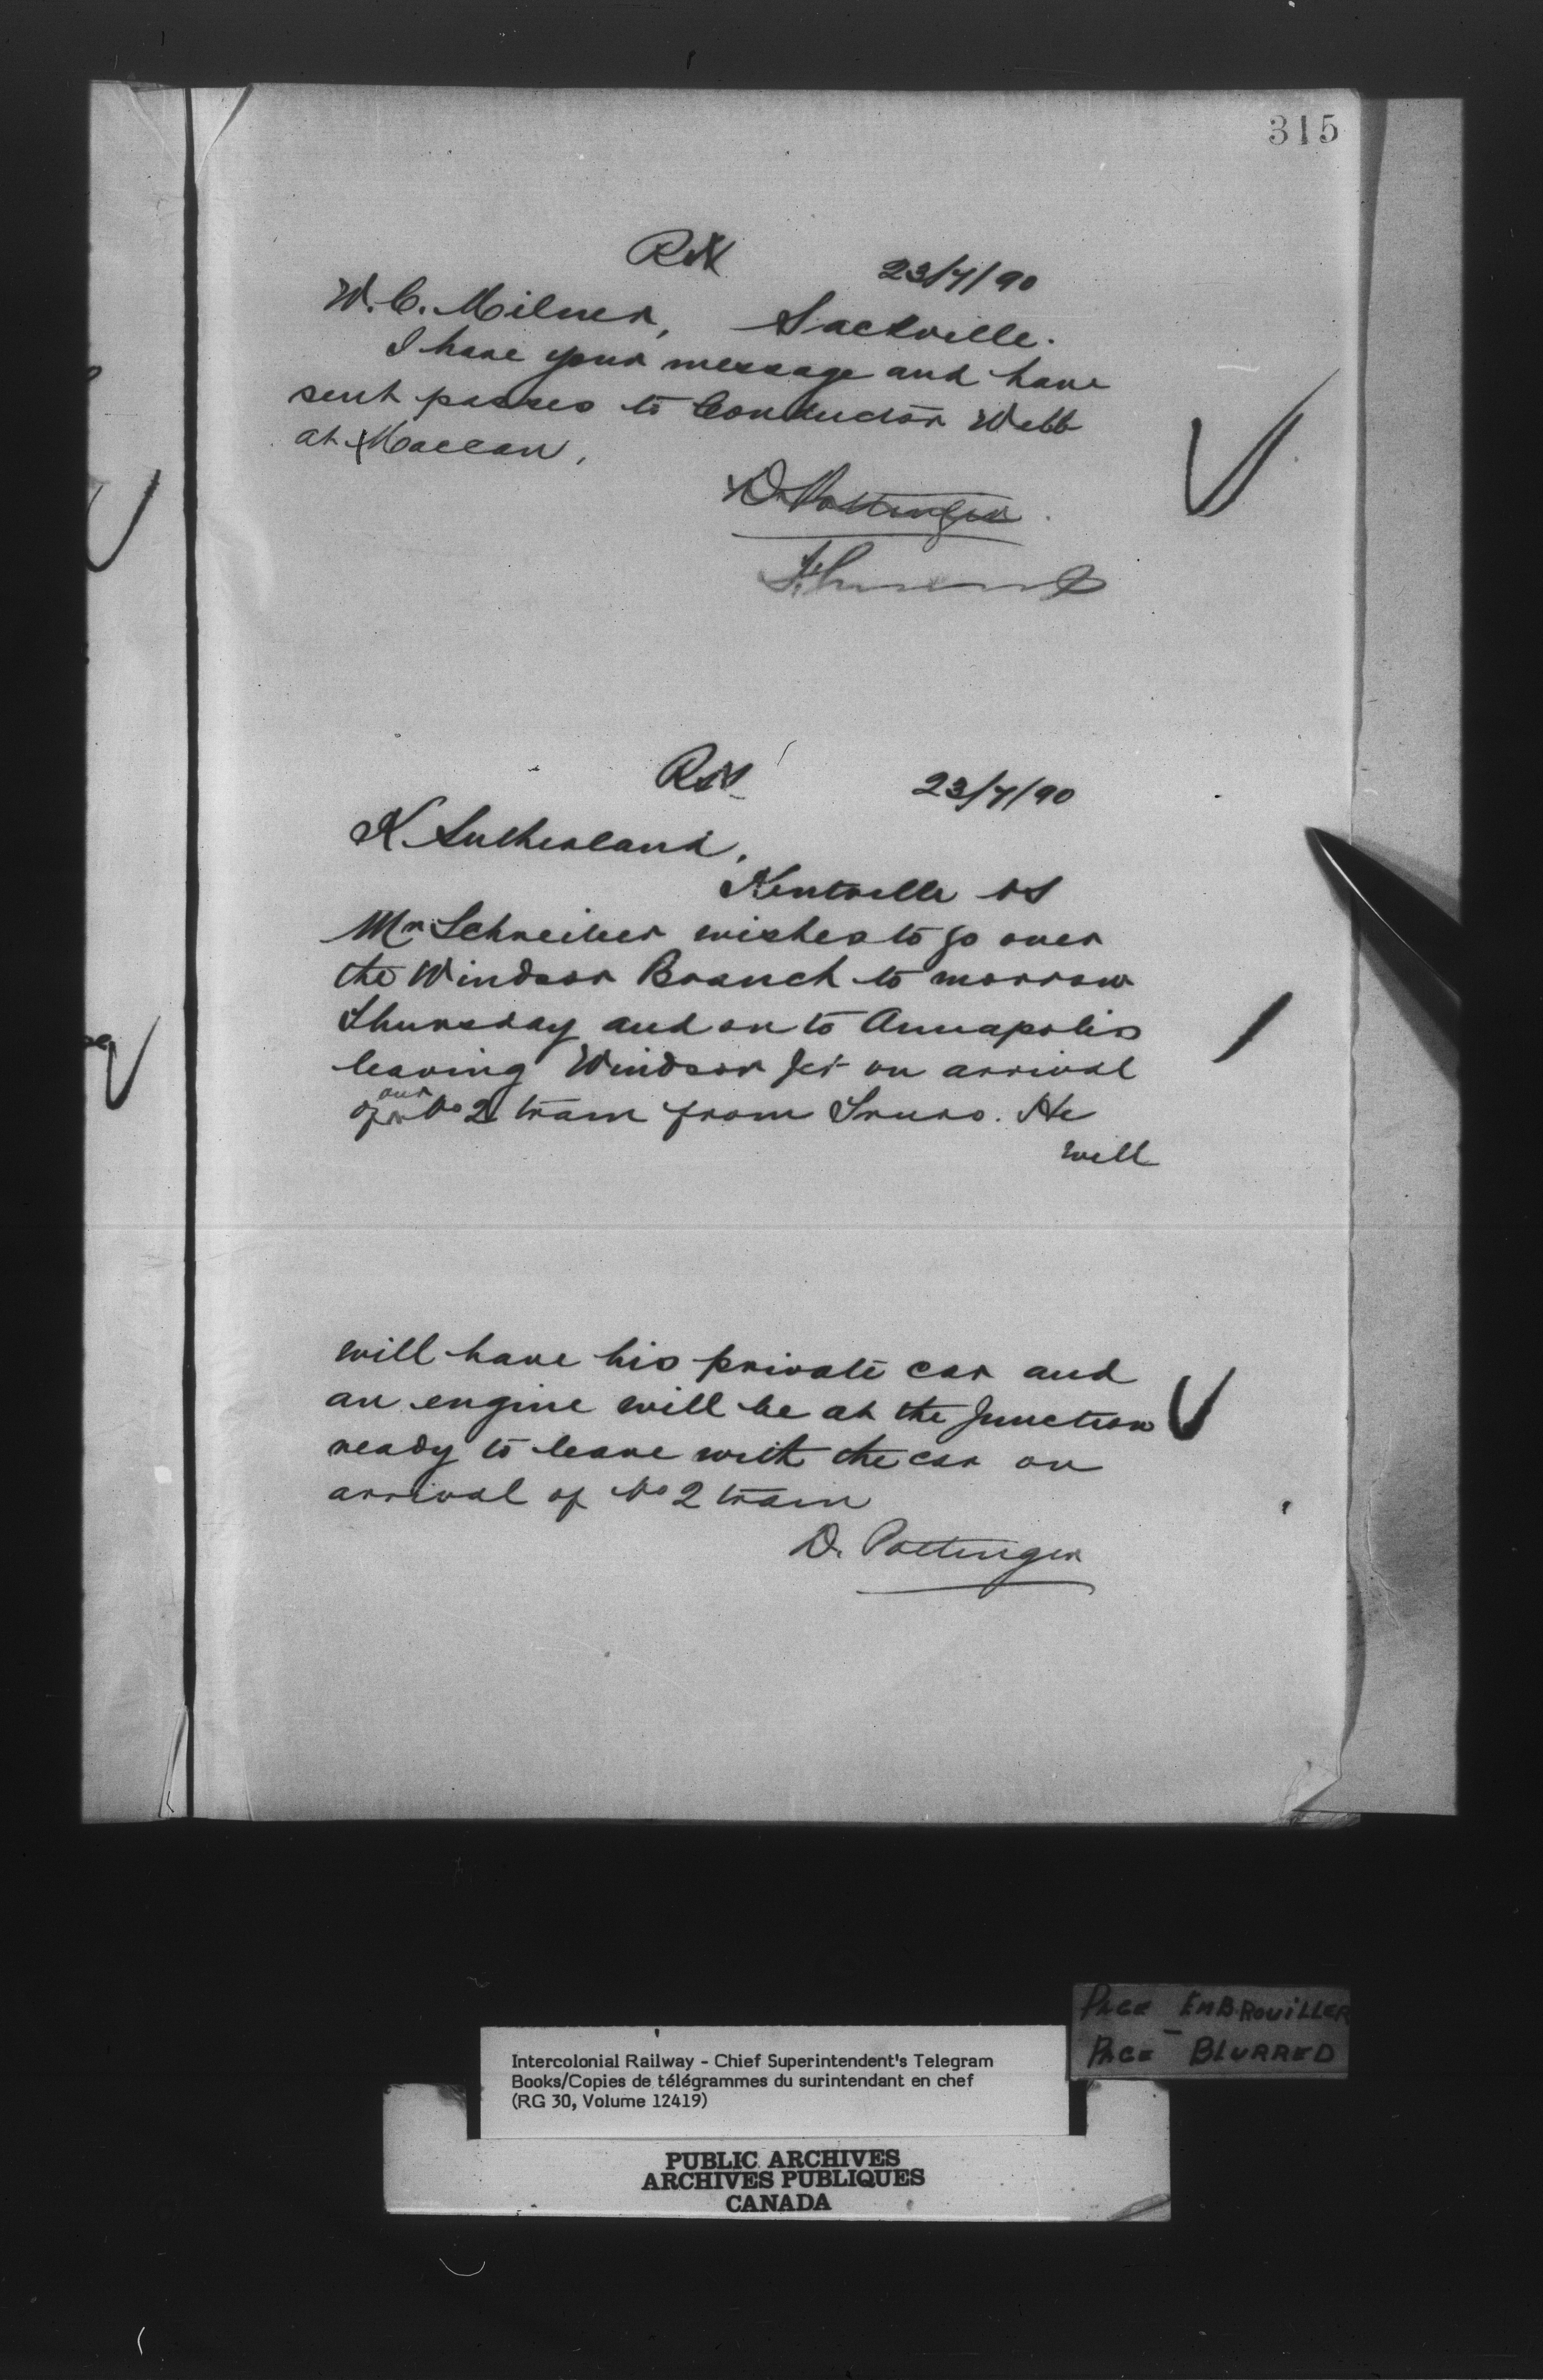 315
23/7/90
W. C. Milner, Sackville.
I have your message and have
sent passes to Conductor Webb
at Maccan,
D. Pottinger
23/7/90
K. Sutherland,
Kentville NS
Mr Schreiber wishes to go over
the Windsor Branch to morrow
Thursday and on to Annapolis
leaving Windsor Jct on arrival
of our No 2 train from Truro. He
will
will have his private car and
an engine will be at the Junction
ready to leave with the car on
arrival of No 2 train
D. Pottinger
PAGE EMBROUILLER
PAGE BLURRED
Intercolonial Railway - Chief Superintendent's Telegram
Books/Copies de télégrammes du surintendant en chef
(RG 30, Volume 12419)
PUBLIC ARCHIVES
ARCHIVES PUBLIQUES
CANADA